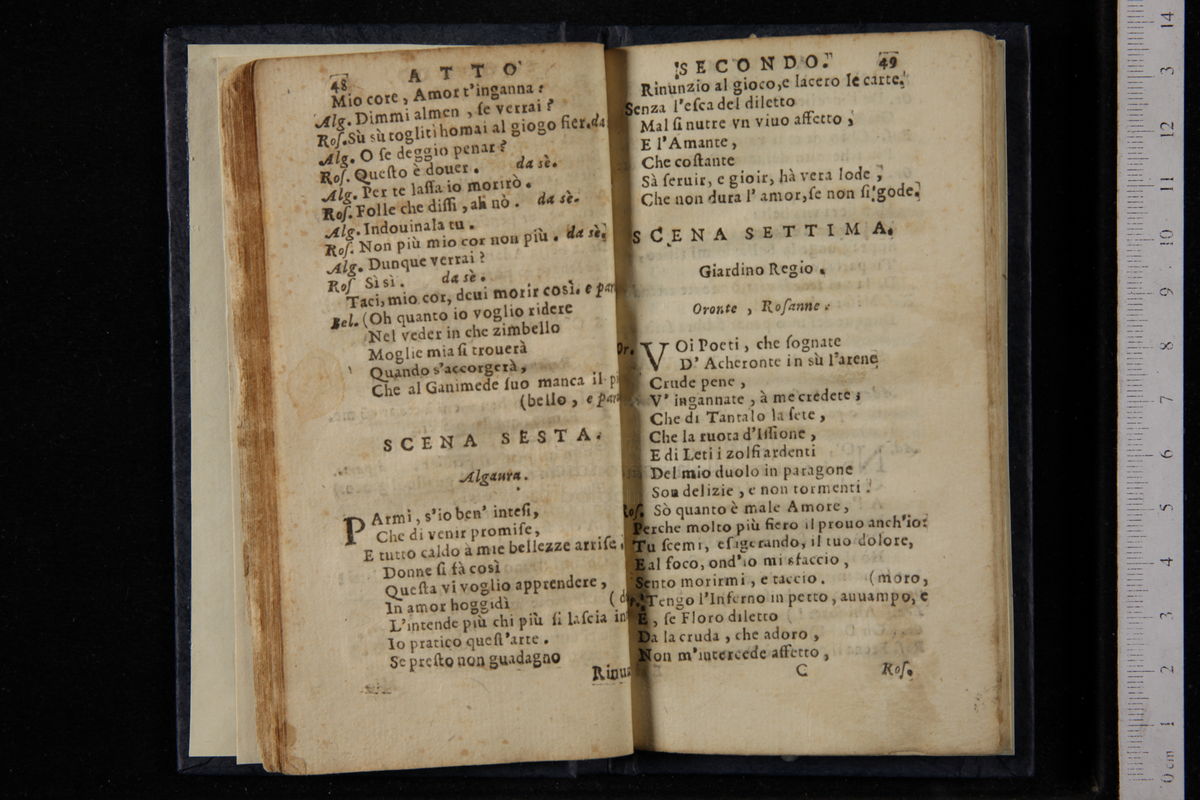 48 ATTO
Mio core, Amor t'inganna:
Alg. Dimmi almen, se verrai?
Ros. Sù sù togliti homai al giogo fier. da
Alg. O se deggio penar?
Ros. Questo è douer. da sè.
Alg. Per te lassa io morirò.
Ros. Folle che dissi, ah nò. da sè.
Alg. Indouinala tu.
Ros. Non più mio cor non più. da sè.
Alg. Dunque verrai?
Ros Sì sì. da sè.
Taci, mio cor, deui morir così. e par
Bel. (Oh quanto io voglio ridere
Nel veder in che zimbello
Moglie mia si trouerà
Quando s'accorgerà,
Che al Ganimede suo manca il pi
(bello, e par
SCENA SESTA.
Algaura.
PArmì, s'io ben' intesi,
Che di venir promise,
E tutto caldo à mie bellezze arrise.
Donne si fà così
Questa vi voglio apprendere,
In amor hoggidì
L'intende più chi più si lascia in
Io pratico quest'arte.
Se presto non guadagno
Rinu
SECONDO. 49
Rinunzio al gioco, e lacero le carte.
Senza l'esca del diletto
Mal si nutre vn viuo affetto,
E l'Amante,
Che costante
Sà seruir, e gioir, hà vera lode,
Che non dura l'amor, se non si gode.
SCENA SETTIMA.
Giardino Regio.
Oronte, Rosanne.
Or. VOi Poeti, che sognate
D'Acheronte in sù l'arene
Crude pene,
V'ingannate, à me credete,
Che di Tantalo la sete,
Che la ruota d'Issione,
E di Leti i zolfi ardenti
Del mio duolo in paragone
Son delizie, e non tormenti.
Ros. Sò quanto è male Amore,
Perche molto più fiero il prouo anch'io:
Tu scemi, esagerando, il tuo dolore,
E al foco, ond'io mi sfaccio,
Sento morirmi, e taccio. (moro,
Or. Tengo l'Inferno in petto, auuampo, e
E, se Floro diletto
Da la cruda, che adoro,
Non m'intercede affetto,
C Ros.